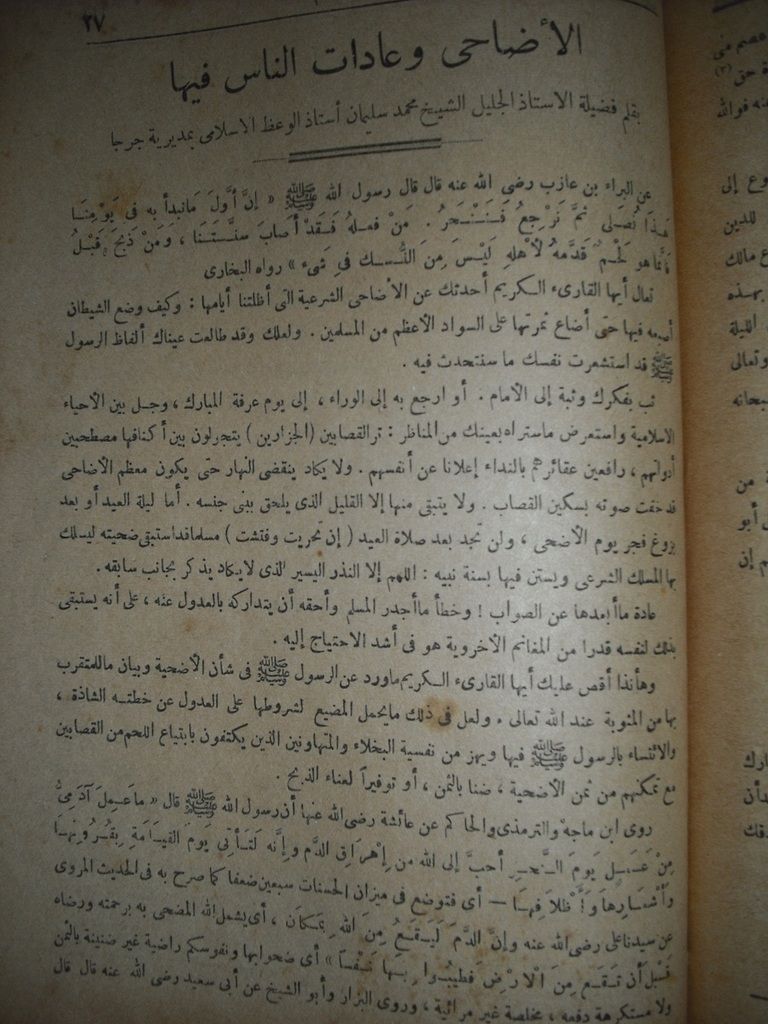 ٢٧
الأضاحى وعادات الناس فيها
بقلم فضيلة الاستاذ الجليل الشيخ محمد سليمان أستاذ الوعظ الاسلامى بمديرية جرجا
عن البراء بن عازب رضى الله عنه قال قال رسول الله ﷺ « إنَّ أوَّلَ مَا نبدأ به فى يَوْمِنَا
هذَا نُصَلى ثمَّ نَرْجِعُ فَنَنْحَرُ . مَنْ فعلهُ فَقَدْ أصَابَ سنَّتَنَا ، وَمَنْ ذبَحَ قَبْلُ
فَإنما هو لَحْمٌ قدَّمهُ لأهلهِ لَيْسَ مِنَ النُّسك فى شىء » رواه البخارى
تعال أيها القارىء الكريم أحدثك عن الأضاحى الشرعية التى أظلتنا أيامها : وكيف وضع الشيطان
أصبعه فيها حتى أضاع ثمرتها على السواد الأعظم من المسلمين . ولعلك وقد طالعت عيناك ألفاظ الرسول
ﷺ قد استشعرت نفسك ما سنتحدث فيه .
ثب بفكرك وثبة إلى الأمام . أو ارجع به إلى الوراء ، إلى يوم عرفة المبارك ، وجل بين الأحياء
الاسلامية واستعرض ماستراه بعينك من المناظر : تر القصابين (الجزارين) يتجولون بين أكنافها مصطحبين
أدواتهم ، رافعين عقائرهم بالنداء إعلانا عن أنفسهم . ولا يكاد ينقضى النهار حتى يكون معظم الأضاحى
قد خفت صوته بسكين القصاب . ولا يتبقى منها إلا القليل الذى يلحق ببنى جنسه . أما ليلة العيد أو بعد
بزوغ فجر يوم الأضحى ، ولن تجد بعد صلاة العيد ( إن تحريت وفتشت ) مسلما قد استبقى ضحيته ليسلك
بها المسلك الشرعى ويستن فيها بسنة نبيه : اللهم إلا النذر اليسير الذى لا يكاد يذكر بجانب سابقه .
عادة ما أبعدها عن الصواب ! وخطأ ما أجدر المسلم وأحقه أن يتداركه بالعدول عنه ، على أنه يستبقى
بذلك لنفسه قدرا من المغانم الأخروية هو فى أشد الاحتياج إليه .
وهأنذا أقص عليك أيها القارىء الكريم ماورد عن الرسول ﷺ فى شأن الأضحية وبيان ماللمتقرب
بها من المثوبة عند الله تعالى . ولعل فى ذلك مايحمل المضيع لشروطها على العدول عن خطته الشاذة ،
والائتساء بالرسول ﷺ فيها ويهز من نفسية البخلاء والمتهاونين الذين يكتفون بابتياع اللحم من القصابين
مع تمكنهم من ثمن الأضحية ، ضنا بالثمن ، أو توفيراً لعناء الذبح .
روى ابن ماجه والترمذى والحاكم عن عائشة رضى الله عنها أن رسول الله ﷺ قال « ماعَمِلَ آدَمِىٌّ
مِنْ عَمَلٍ يَومَ النَّحرِ أحبَّ إلى الله من إهْرَاقِ الدَّم وإنَّه لَتَأتِى يَومَ القيَامَةِ بِقُرُونِهَا
وَأشْعَارِهَا وَأظْلاَفِهَا — أى فتوضع فى ميزان الحسنات سبعين ضعفا كما صرح به فى الحديث المروى
عن سيدنا على رضى الله عنه وإنَّ الدَّمَ لَيَقَعُ مِنَ اللهِ بِمَكَان ، أى يشمل الله المضحى به برحمته ورضاه
قَبْلَ أن تَقَع مِنَ الأرْض فَطيبُوا بِهَا نَفْساً » أى ضحوا بها ونفوسكم راضية غير ضنينة بالثمن
ولا مستكرهة دفعه ، مخلصة غير مرائية ، وروى البزار وأبو الشيخ عن أبى سعيد رضى الله عنه قال قال